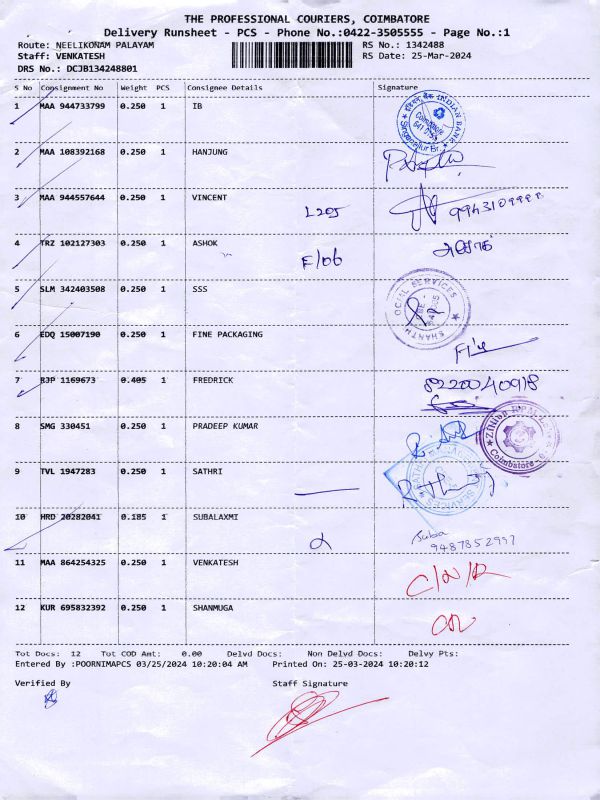 THE PROFESSIONAL COURIERS, COIMBATORE
Delivery Runsheet - PCS - Phone No.:0422-3505555 - Page No.:1
Route: NEELIKONAM PALAYAM RS No.: 1342488
Staff: VENKATESH RS Date: 25-Mar-2024
DRS No.: DCJB134248801
S No Consignment No Weight PCS Consignee Details Signature
1 MAA 944733799 0.250 1 IB
INDIAN BANK
2 MAA 108392168 0.250 1 HANJUNG
3 MAA 944557644 0.250 1 VINCENT
L205
4 TRZ 102127303 0.250 1 ASHOK
F/06
5 SLM 342403508 0.250 1 SSS
6 EDQ 15007190 0.250 1 FINE PACKAGING
7 RJP 1169673 0.405 1 FREDRICK 8220040918
8 SMG 330451 0.250 1 PRADEEP KUMAR
9 TVL 1947283 0.250 1 SATHRI
10 HRD 20282041 0.185 1 SUBALAXMI
Suba
9487852997
11 MAA 864254325 0.250 1 VENKATESH C/N/R
12 KUR 695832392 0.250 1 SHANMUGA
Tot Docs: 12 Tot COD Amt: 0.00 Delvd Docs: Non Delvd Docs: Delvy Pts:
Entered By :POORNIMAPCS 03/25/2024 10:20:04 AM Printed On: 25-03-2024 10:20:12
Verified By Staff Signature